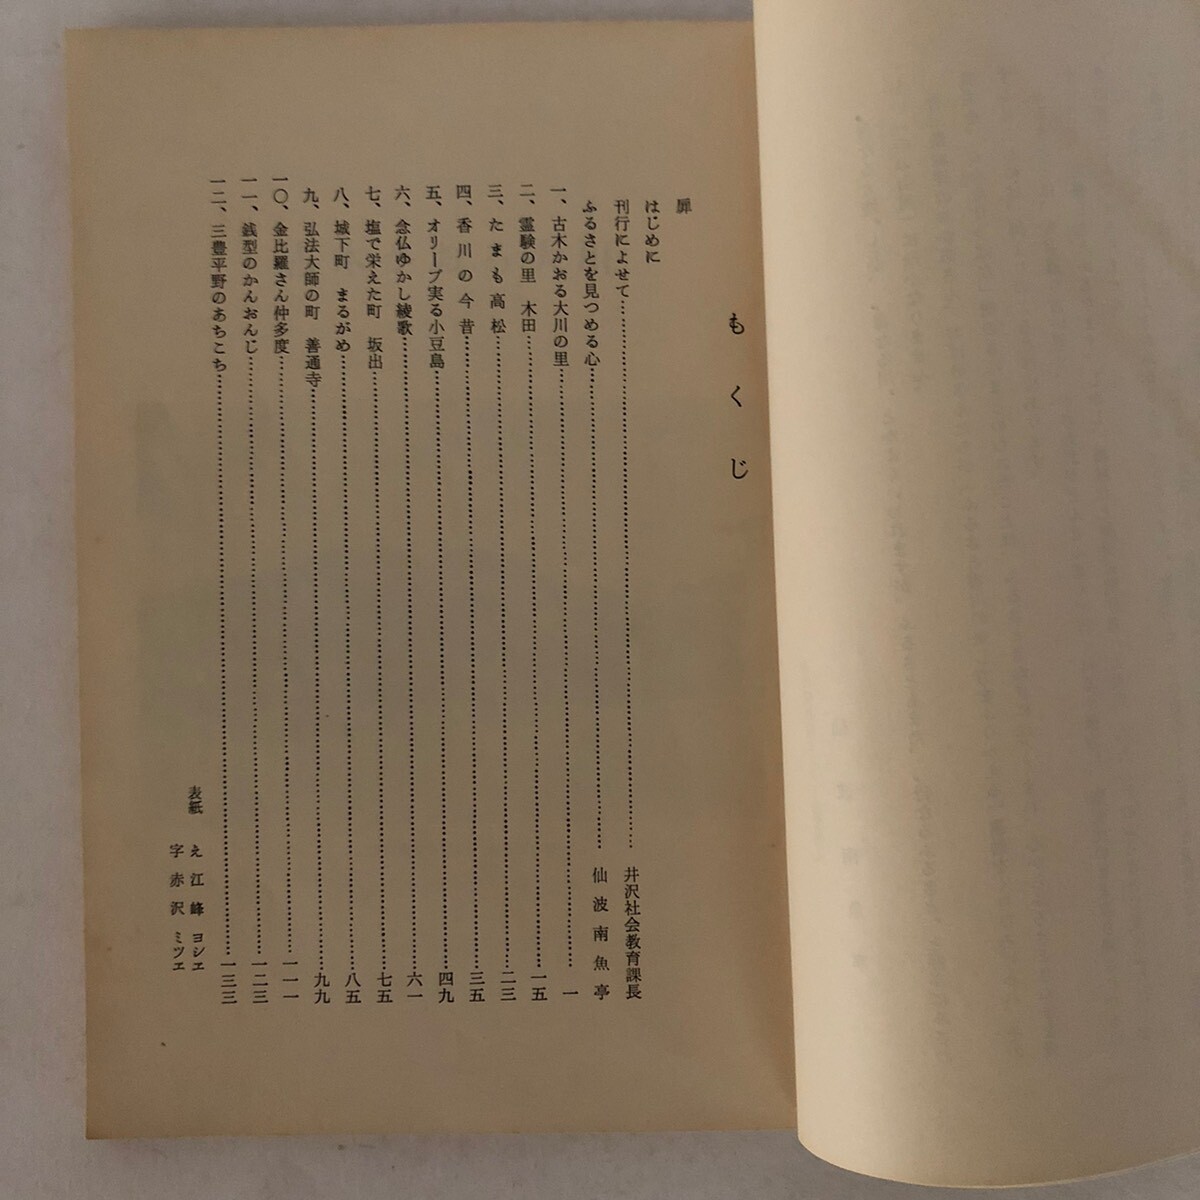 もくじ
扉
はじめに
刊行によせて……井沢社会教育課長
ふるさとを見つめる心……仙波南魚亭
一、古木かおる大川の里……一
二、霊験の里　木田……一五
三、たまも高松……二三
四、香川の今昔……三五
五、オリーブ実る小豆島……四九
六、念仏ゆかし綾歌……六一
七、塩で栄えた町　坂出……七五
八、城下町　まるがめ……八五
九、弘法大師の町　善通寺……九九
一〇、金比羅さん仲多度……一一一
一一、銭型のかんおんじ……一二三
一二、三豊平野のあちこち……一三三
表紙　え　江峰ヨシエ
字　赤沢ミツエ